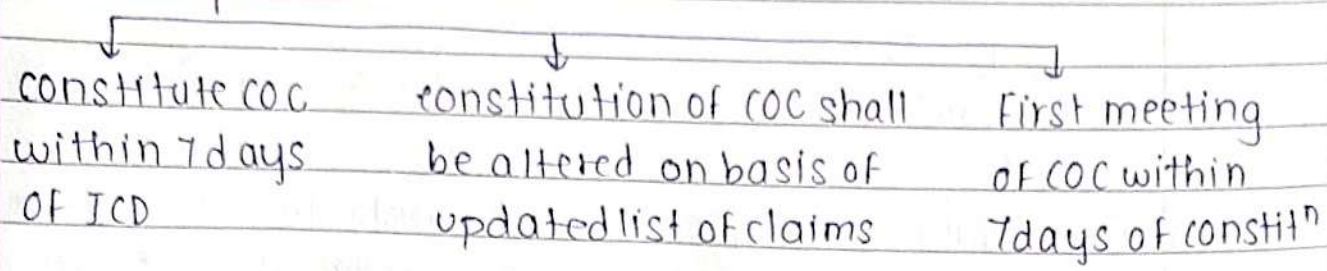 constitute COC
within 7days
of ICD
constitution of COC shall
be altered on basis of
updated list of claims
First meeting
of COC within
7days of constitⁿ